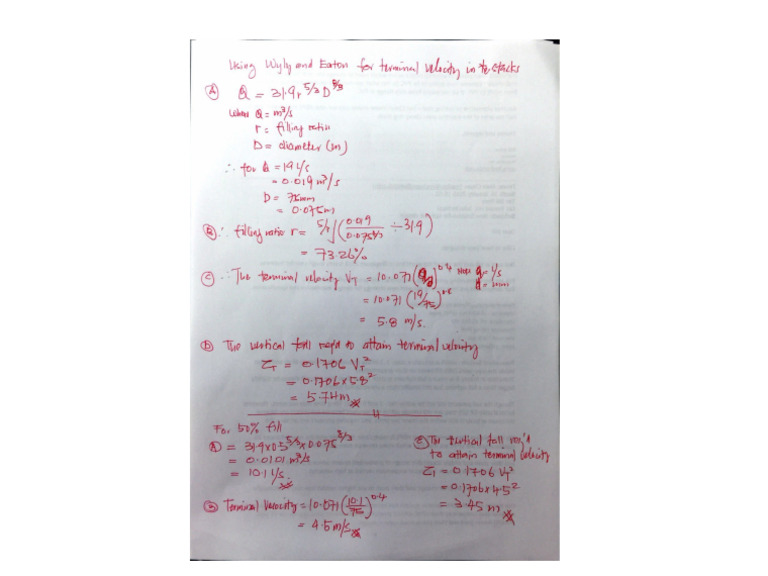 Using Wyly and Eaton for terminal velocity in the stacks
(A) Q = 31.9 r^5/3 D^8/3
Where Q = m³/s
r = filling ratio
D = diameter (m)
∴ for Q = 19 L/s
= 0.019 m³/s
D = 75mm
= 0.075m
(B) ∴ filling ratio r = 5/3√(0.019/0.075^8/3 ÷ 31.9)
= 73.26%
(C) ∴ The terminal velocity V_T = 10.071 (q/d)^0.4 Note q = L/s
d = mm
= 10.071 (19/75)^0.4
= 5.8 m/s.
(D) The vertical fall reqd to attain terminal velocity
Z_T = 0.1706 V_T²
= 0.1706 x 5.8²
= 5.74m
For 50% fill
(A) = 31.9 x 0.5^5/3 x 0.075^8/3
= 0.0101 m³/s
= 10.1 L/s.
(B) Terminal Velocity = 10.071 (10.1/75)^0.4
= 4.5 m/s
(C) The vertical fall req'd
to attain terminal velocity
Z_T = 0.1706 V_T²
= 0.1706 x 4.5²
= 3.45 m